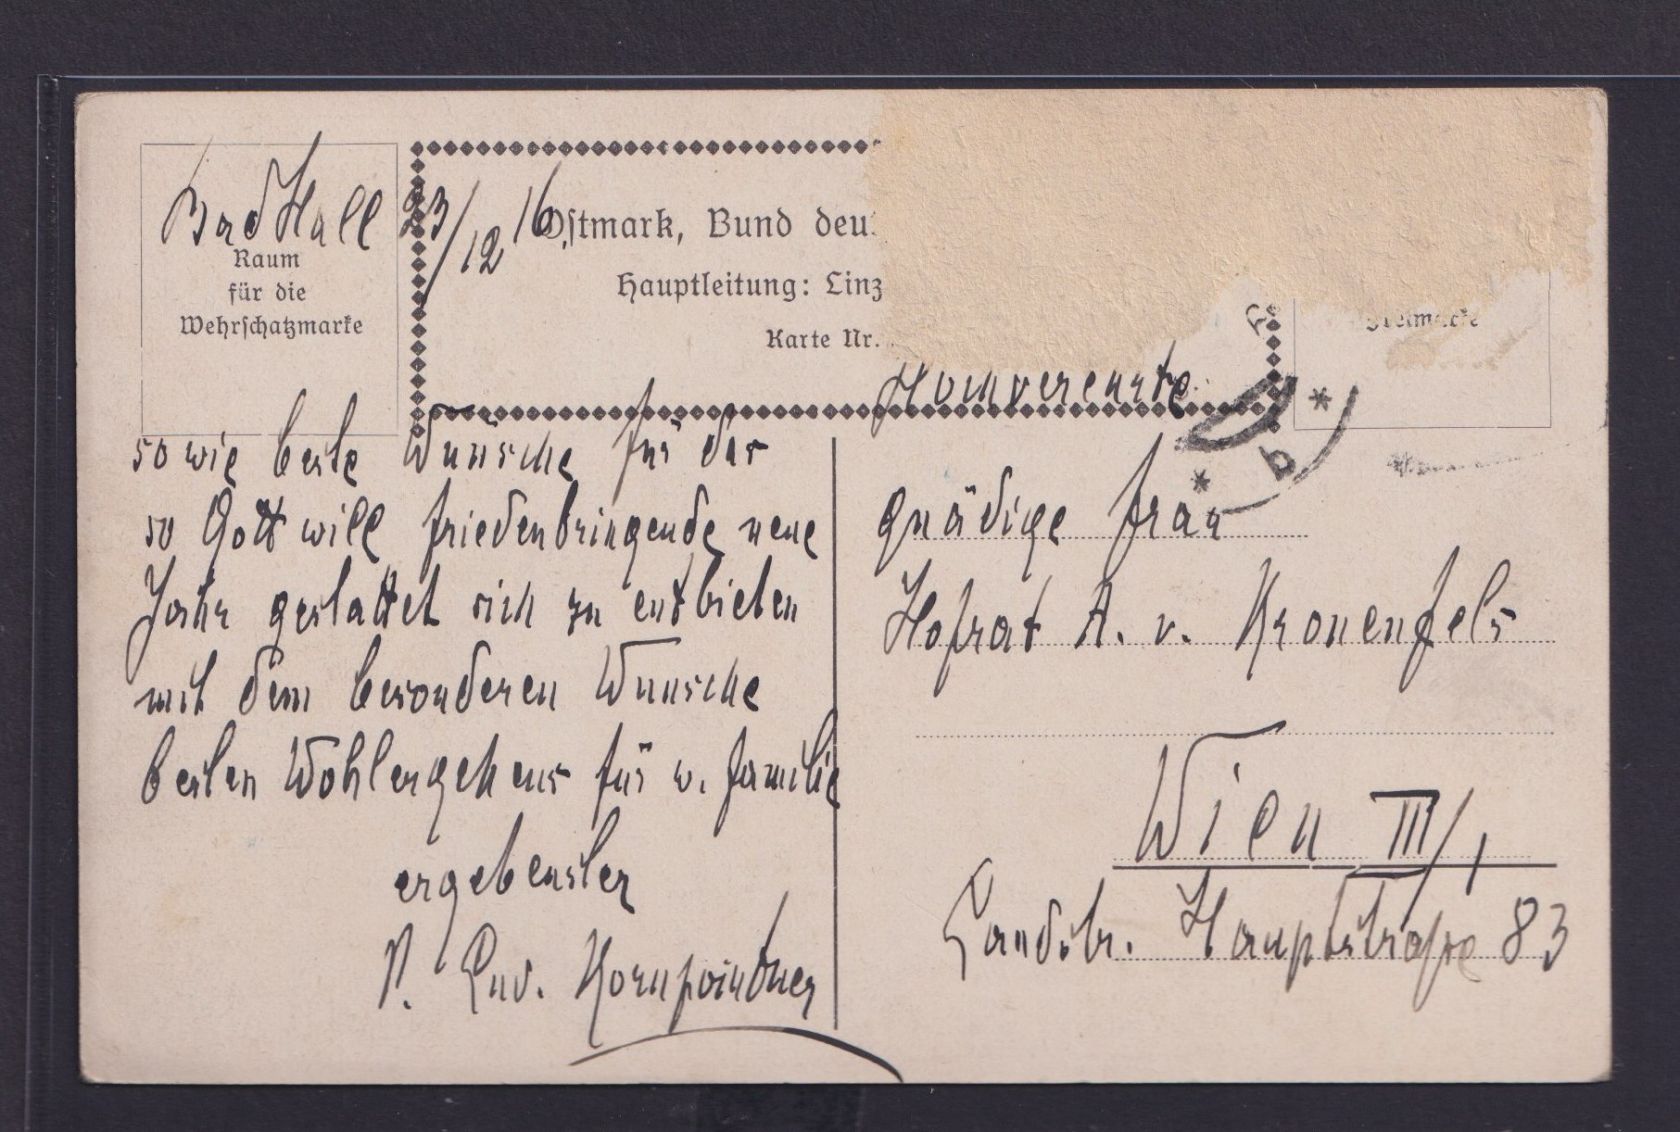 Bad Hall 23/12 16.
Raum
für die
Wehrschatzmarke
Ostmark, Bund deu
Hauptleitung: Linz
Karte Nr.
so wie beste Wünsche für das
so Gott will friedenbringende neue
Jahr gestattet sich zu entbieten
mit dem besonderen Wunsche
besten Wohlergehens für w. Familie
ergebenster
P. Lud. Kornpointner
Hochverehrte
gnädige Frau
Hofrat A. v. Kronenfels
Wien III/1
Landstr. Hauptstraße 83
* b *